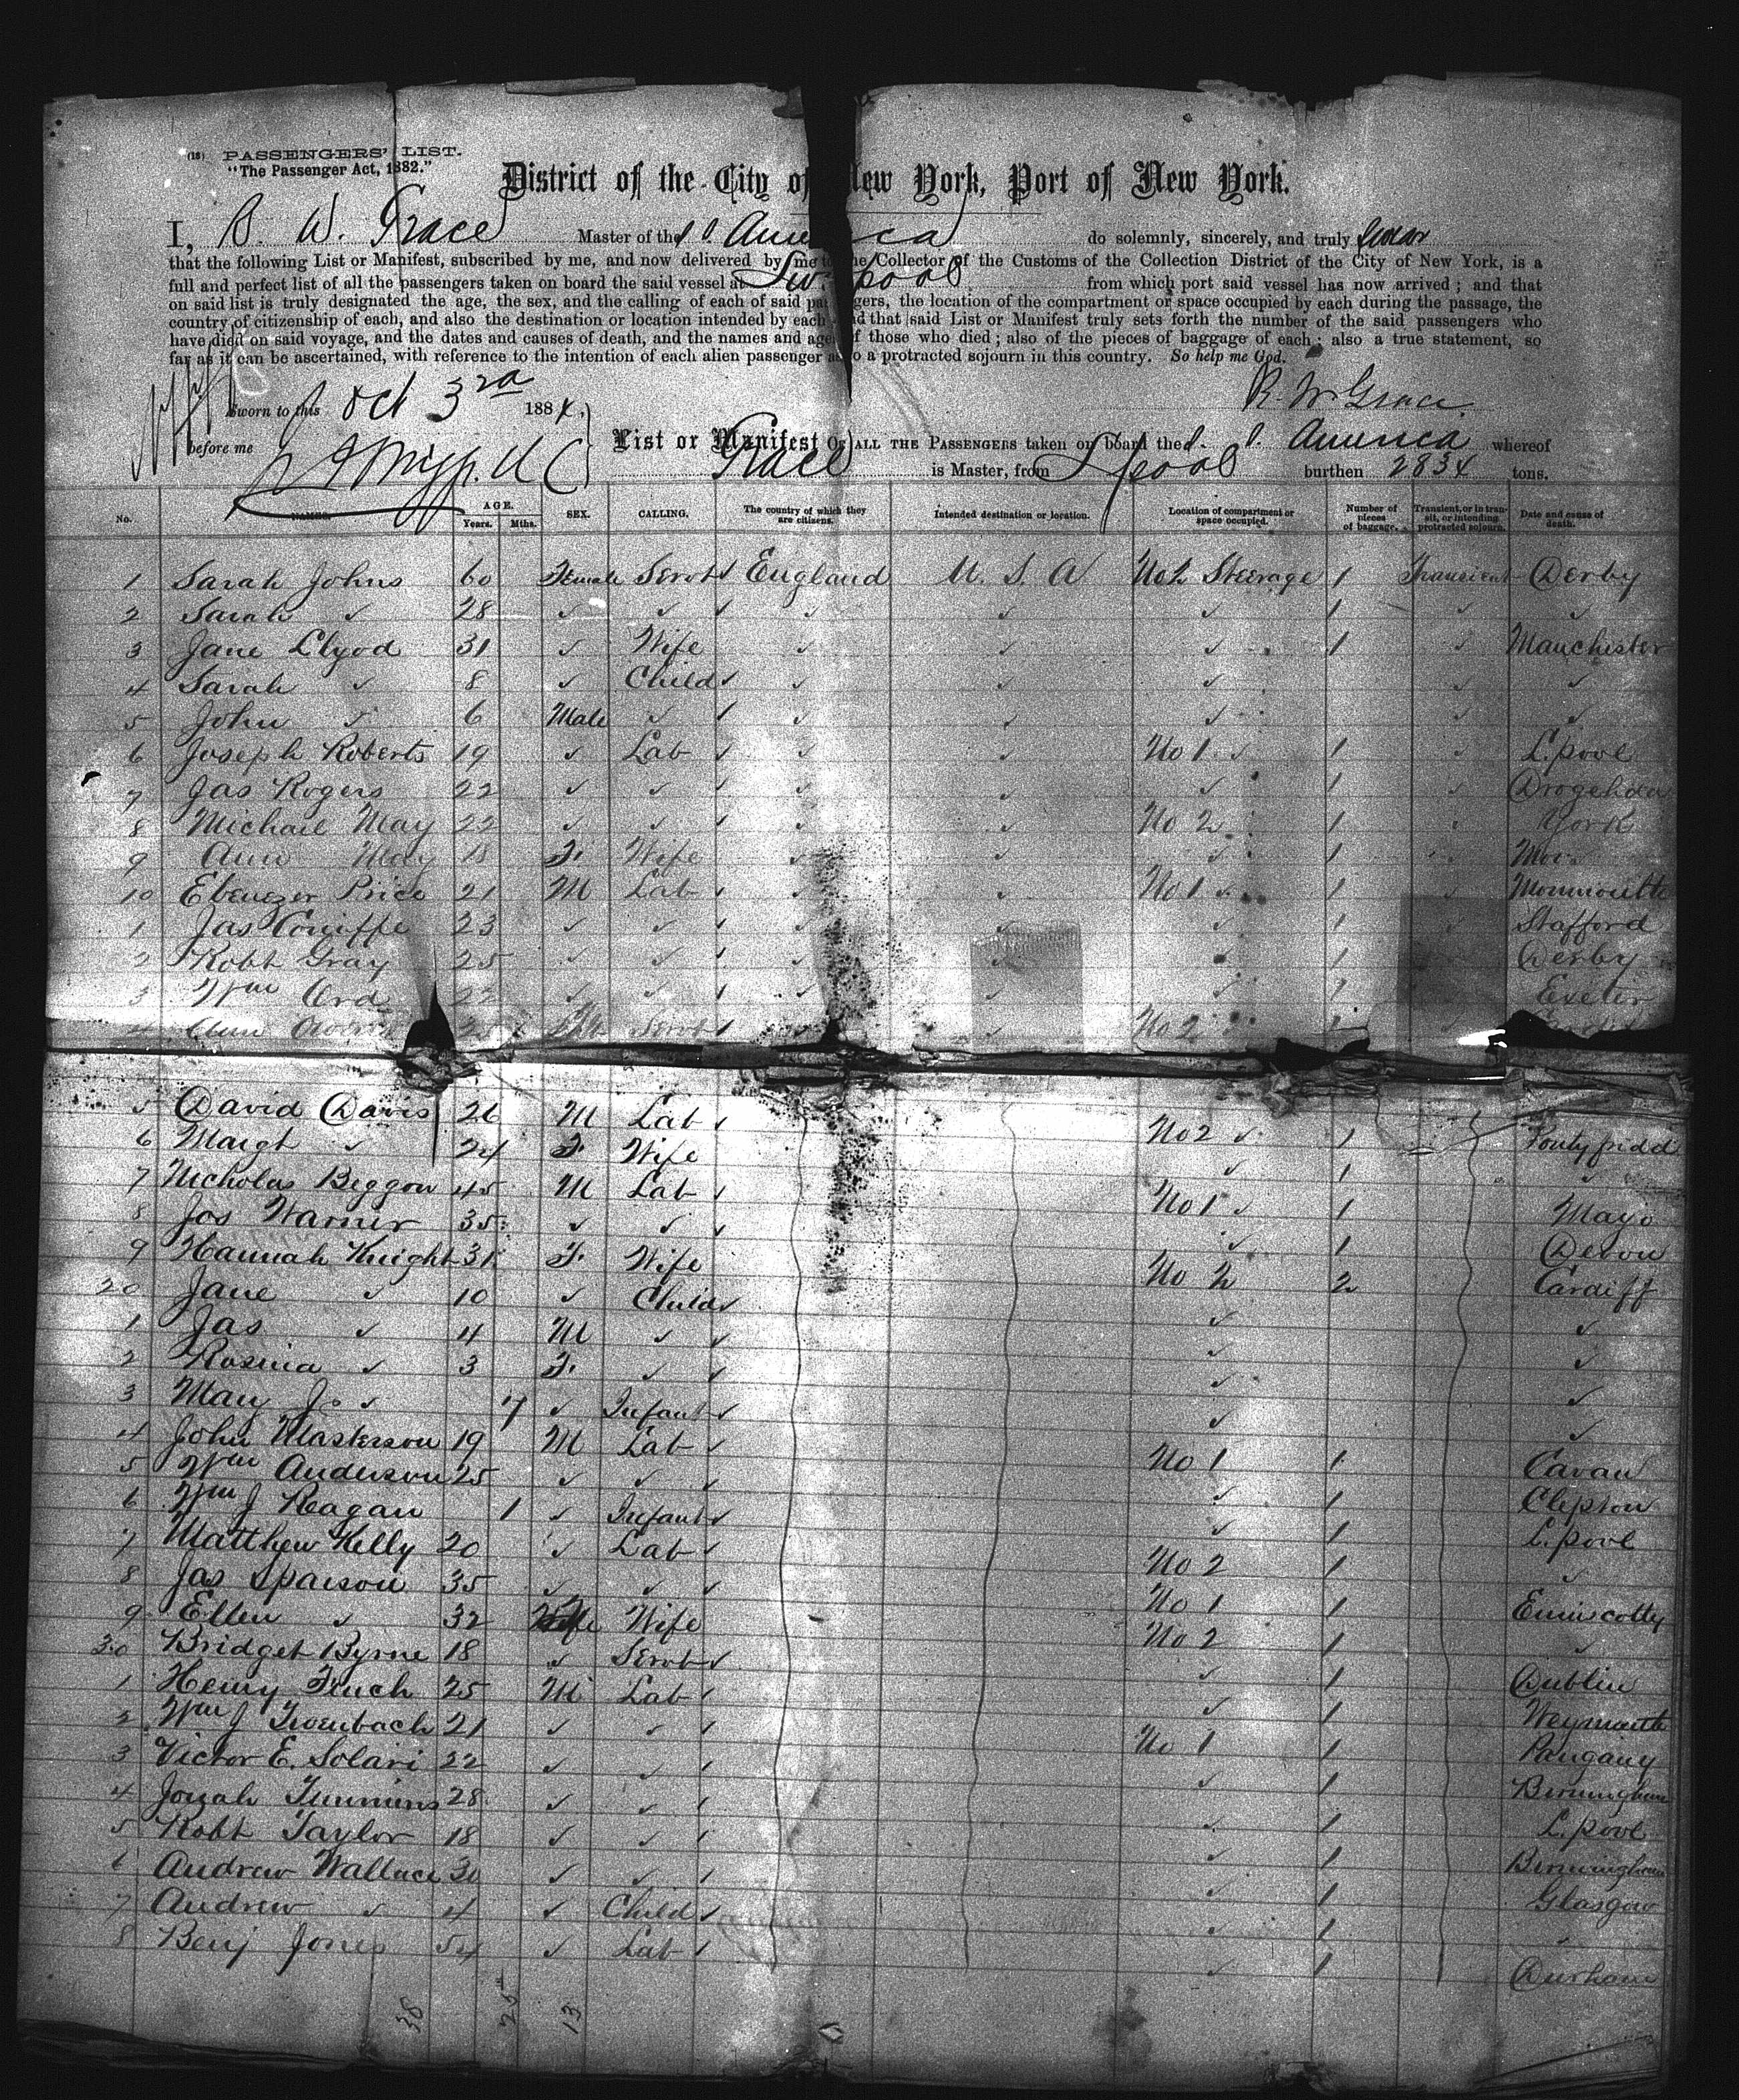 (18) PASSENGERS' LIST.
"The Passenger Act, 1882."
District of the City of New York, Port of New York.
I, R. W. Grace Master of the S.S. America do solemnly, sincerely, and truly swear
that the following List or Manifest, subscribed by me, and now delivered by me to the Collector of the Customs of the Collection District of the City of New York, is a
full and perfect list of all the passengers taken on board the said vessel at Liv. pool from which port said vessel has now arrived; and that
on said list is truly designated the age, the sex, and the calling of each of said passengers, the location of the compartment or space occupied by each during the passage, the
country of citizenship of each, and also the destination or location intended by each and that said List or Manifest truly sets forth the number of the said passengers who
have died on said voyage, and the dates and causes of death, and the names and ages of those who died; also of the pieces of baggage of each; also a true statement, so
far as it can be ascertained, with reference to the intention of each alien passenger as to a protracted sojourn in this country. So help me God.
Sworn to this Oct 3rd 1884. R. W. Grace.
before me
List or Manifest OF ALL THE PASSENGERS taken on board the S. S. America whereof
Grace is Master, from Lpool burthen 2834 tons.
No. NAMES. AGE. Years. Mths. SEX. CALLING. The country of which they are citizens. Intended destination or location. Location of compartment or space occupied. Number of pieces of baggage. Transient, or in transit, or intending protracted sojourn. Date and cause of death.
1 Sarah Johns 60 Female Servt England U. S. A No 2 Steerage 1 Transient Derby
2 Sarah ✓ 28 ✓ ✓ ✓ ✓ ✓ 1 ✓ ✓
3 Jane Llyod 31 ✓ Wife ✓ ✓ ✓ 1 ✓ Manchester
4 Sarah ✓ 8 ✓ Child ✓ ✓ ✓ ✓ ✓
5 John ✓ 6 Male ✓ ✓ ✓ ✓ ✓ ✓
6 Joseph Roberts 19 ✓ Lab ✓ ✓ No 1 ✓ 1 ✓ L.pool
7 Jas Rogers 22 ✓ ✓ ✓ ✓ ✓ 1 ✓ Drogehda
8 Michael May 22 ✓ ✓ ✓ ✓ No 2 1 ✓ York
9 Ann May 18 F. Wife ✓ ✓ ✓ 1 ✓
10 Ebenezer Price 21 M Lab ✓ ✓ No 1 ✓ 1 ✓ Monmouth
1 Jas Conniffe 23 ✓ ✓ ✓ ✓ ✓ 1 Stafford
2 Robt Gray 25 ✓ ✓ ✓ ✓ 1 Derby
3 Wm Ord 22 ✓ ✓ ✓ ✓ ✓ 1 Exeter
4 Ann 25 Servt ✓ No 2 1 ✓
5 David Davis 26 M Lab No 2 ✓ 1 Pontypridd
6 Margt ✓ 24 F. Wife ✓ 1 ✓
7 Nicholas Beggon 45 M Lab No 1 ✓ 1 Mayo
8 Jos Warner 35 ✓ ✓ ✓ 1 Devon
9 Hannah Knight 31 F. Wife No 2 2 Cardiff
20 Jane ✓ 10 ✓ Child ✓ ✓
1 Jas ✓ 4 M ✓ ✓ ✓
2 Rosina ✓ 3 F. ✓ ✓ ✓
3 Mary J. ✓ 7 ✓ Infant ✓ ✓
4 John Masterson 19 M Lab No 1 1 Cavan
5 Wm Anderson 25 ✓ ✓ ✓ 1 Clepton
6 Wm J Reagan 1 ✓ Infant ✓ 1 L.pool
7 Matthew Kelly 20 ✓ Lab No 2 1 ✓
8 Jas Sparson 35 ✓ ✓ No 1 1 Enniscotty
9 Ellen ✓ 32 Wife No 2 1 ✓
30 Bridget Byrne 18 ✓ Servt ✓ 1 Dublin
1 Henry Finch 25 M Lab ✓ 1 Weymouth
2 Wm J Trorbach 21 ✓ ✓ No 1 1
3 Victor E. Solari 22 ✓ ✓ ✓ 1 Birmingham
4 Josiah Timmins 28 ✓ ✓ ✓ 1 L.pool
5 Robt Taylor 18 ✓ ✓ ✓ 1 Birmingham
6 Andrew Wallace 30 ✓ ✓ ✓ 1 Glasgow
7 Andrew ✓ 4 ✓ Child ✓ 1 ✓
8 Benj Jones 54 ✓ Lab ✓ 1 Durham
38 25 13